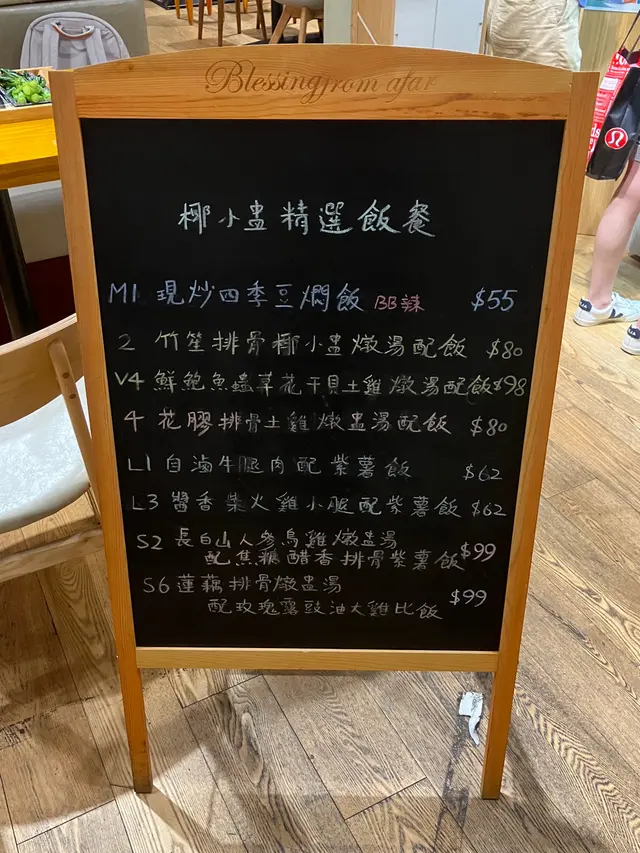 Blessing from afar
椰小盅精選飯餐
M1 現炒四季豆燜飯 BB辣 $55
2 竹笙排骨椰小盅燉湯配飯 $80
V4 鮮鮑魚蟲草花干貝土雞燉湯配飯 $98
4 花膠排骨土雞燉盅湯配飯 $80
L1 自滷牛腿肉配紫薯飯 $62
L3 醬香柴火雞小腿配紫薯飯 $62
S2 長白山人參烏雞燉盅湯
配焦糖醋香排骨紫薯飯 $99
S6 蓮藕排骨燉盅湯
配玫瑰露豉油大雞比飯 $99